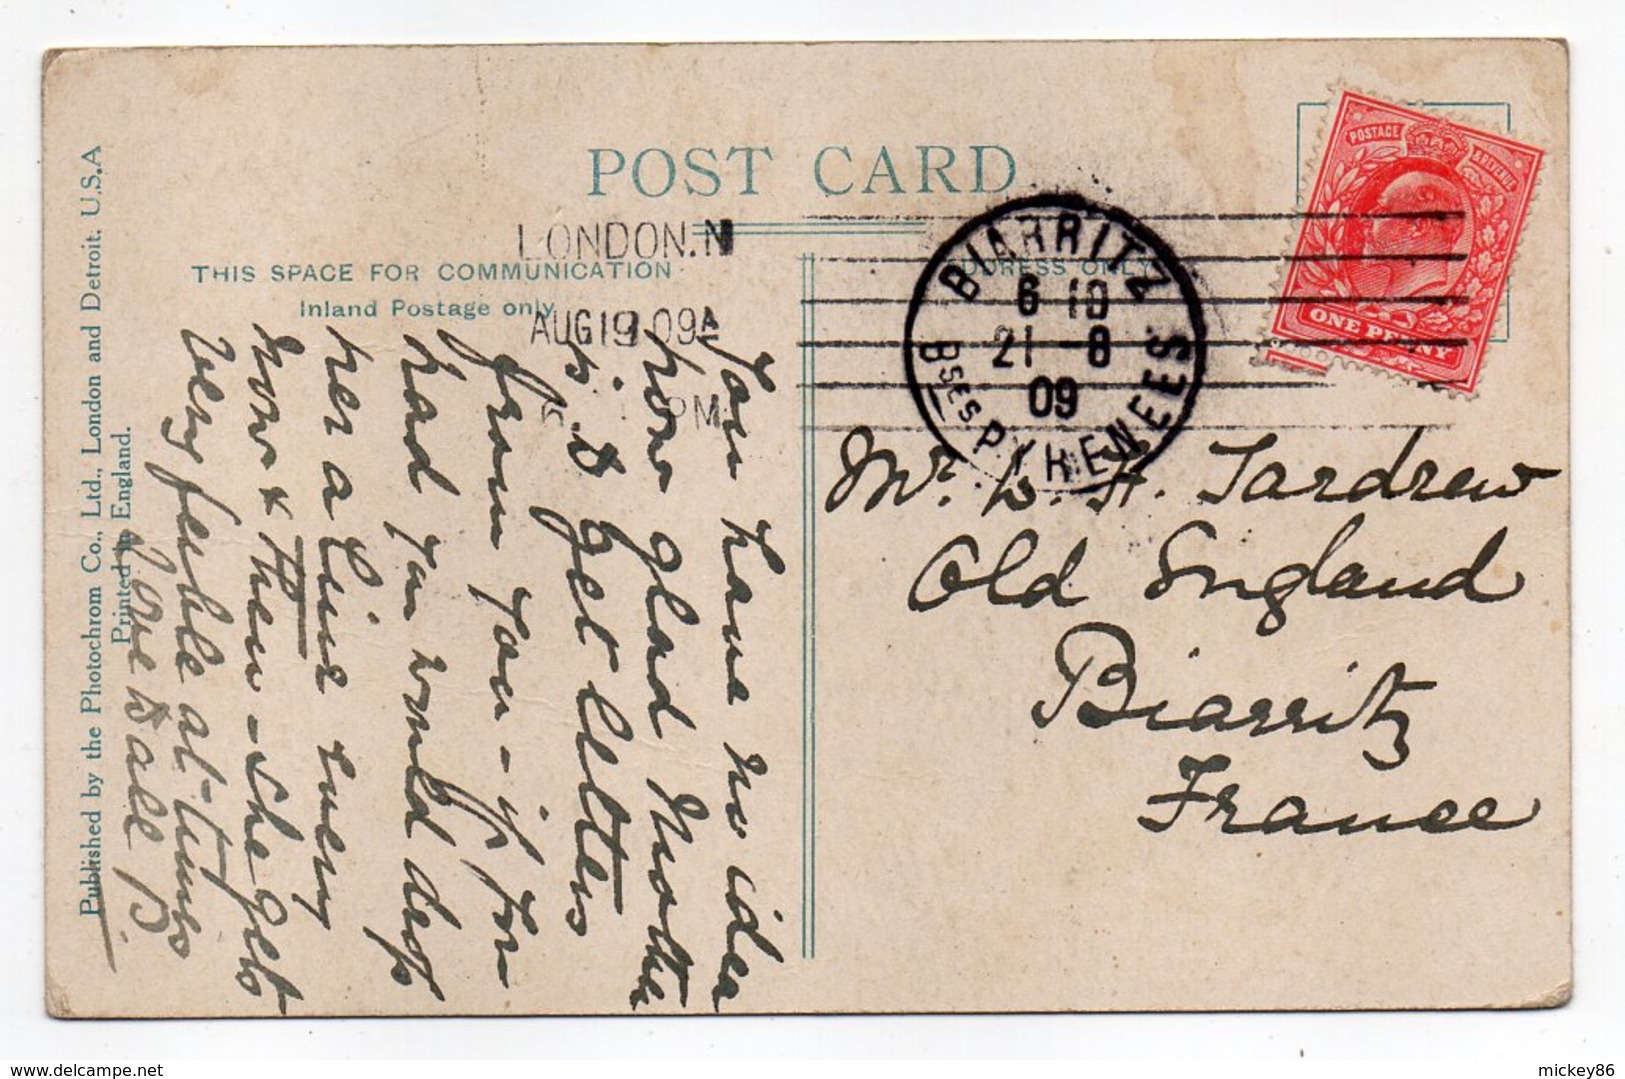 POST CARD
LONDON.N
AUG 19 09
PM
THIS SPACE FOR COMMUNICATION
Inland Postage only
ADDRESS ONLY
BIARRITZ
6 10
21 - 8
09
Bses PYRENEES
POSTAGE & REVENUE
ONE PENNY
Mr. L. H. Tardrew
Old England
Biarritz
France
You have no idea
how glad Mother
is to get letters
from you - if you
had you would drop
her a line every
now & then - she gets
very feeble at times
Love to all B
Published by the Photochrom Co., Ltd., London and Detroit, U.S.A
Printed in England.
mickey86